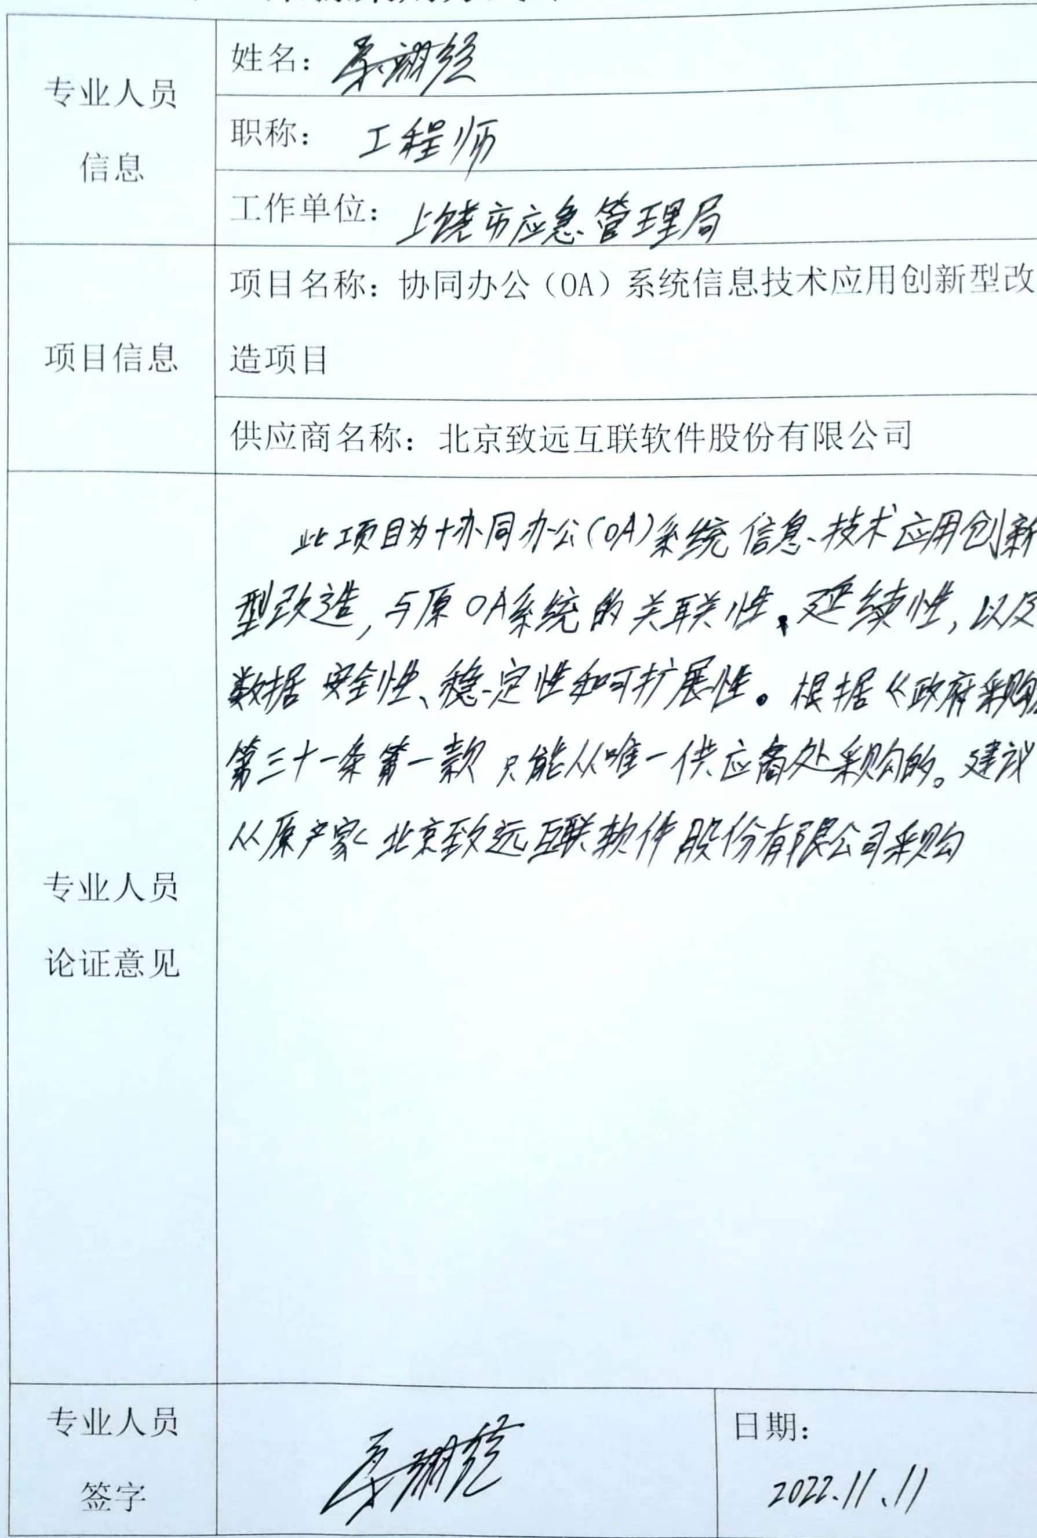 专业人员
信息
姓名:
职称: 工程师
工作单位: 上饶市应急管理局
项目信息
项目名称: 协同办公（OA）系统信息技术应用创新型改
造项目
供应商名称: 北京致远互联软件股份有限公司
专业人员
论证意见
此项目为协同办公(OA)系统信息技术应用创新
型改造,与原OA系统的关联性、延续性,以及
数据安全性、稳定性和可扩展性。根据《政府采购
第三十一条第一款只能从唯一供应商处采购的。建议
从原产家 北京致远互联软件股份有限公司采购
专业人员
签字
日期:
2022.11.11